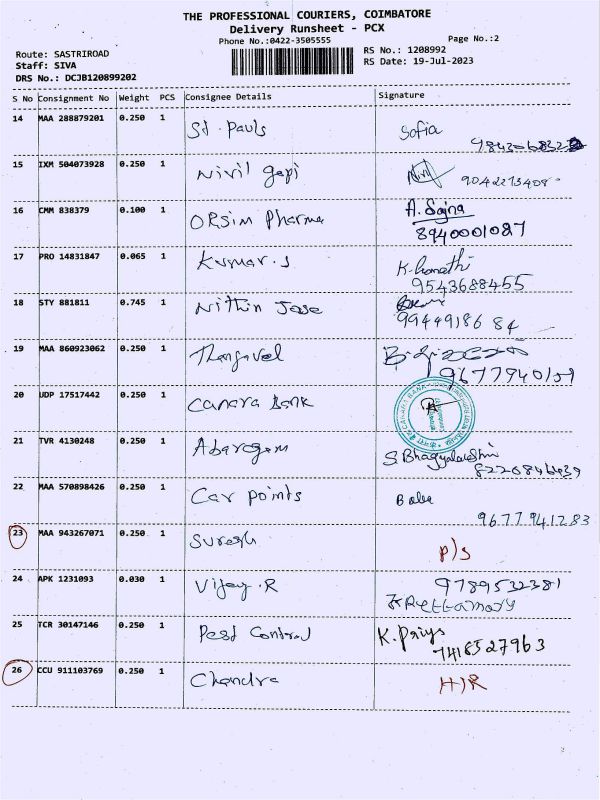 THE PROFESSIONAL COURIERS, COIMBATORE
Delivery Runsheet - PCX
Phone No.:0422-3505555 Page No.:2
Route: SASTRIROAD RS No.: 1208992
Staff: SIVA RS Date: 19-Jul-2023
DRS No.: DCJB120899202
S No Consignment No Weight PCS Consignee Details Signature
14 MAA 288879201 0.250 1 St. Pauls Sofia
15 IXM 504073928 0.250 1 Nivil Gopi
9042213408
16 CMM 838379 0.100 1 ORSim Pharma A. Sajna
8940001087
17 PRO 14831847 0.065 1 Kumar.S K.
9543688455
18 STY 881811 0.745 1 Nithin Jose
9944918684
19 MAA 860923062 0.250 1 Thangavel
9677940159
20 UDP 17517442 0.250 1 Canara Bank
CANARA BANK
21 TVR 4130248 0.250 1 S Bhagyalakshmi
22 MAA 570898426 0.250 1 Car points Baba
9677941283
23 MAA 943267071 0.250 1 Suresh P/S
24 APK 1231093 0.030 1 Vijay.R 9789532381
25 TCR 30147146 0.250 1 Pest Control K. Priya
7418527963
26 CCU 911103769 0.250 1 Chandra H/R